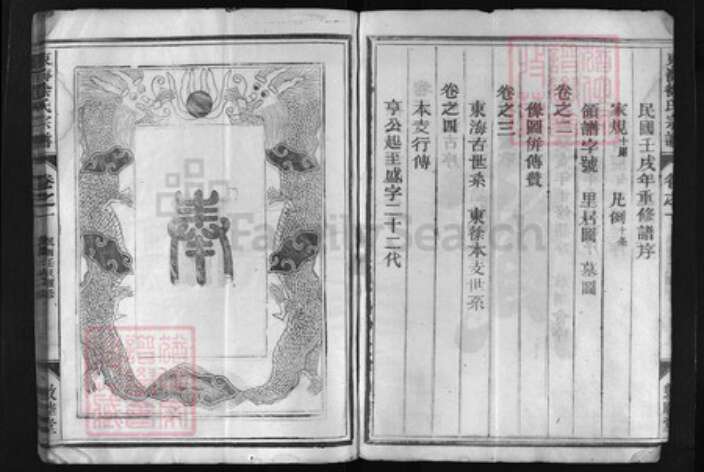 民國壬戌年重修譜序
家規十則 凡例十條
領譜字號 里居圖 墓圖
卷之二
像圖併傳贊
卷之三
東海古世系 東徐本支世系
卷之四
本支行傳
亨公起至盛字二十二代
東海徐氏宗譜 卷之一
奉
FamilySearch